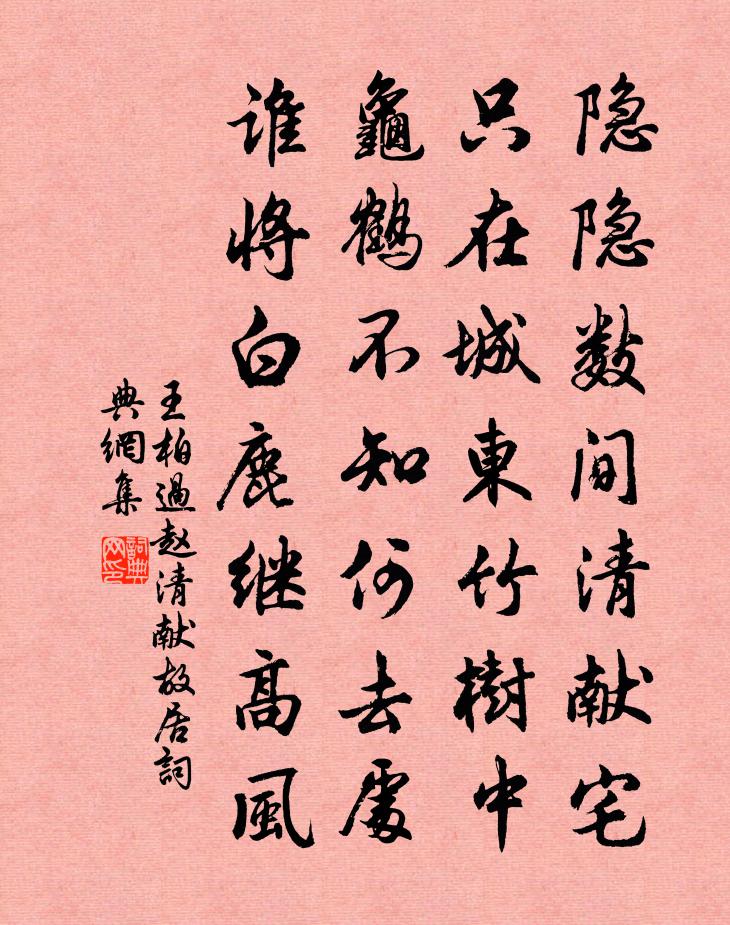 隐隐数间清献宅
只在城東竹樹中
龜鹤不知何去處
谁将白鹿继高風
王柏過赵清献故居詞
典網集
詞典
网印